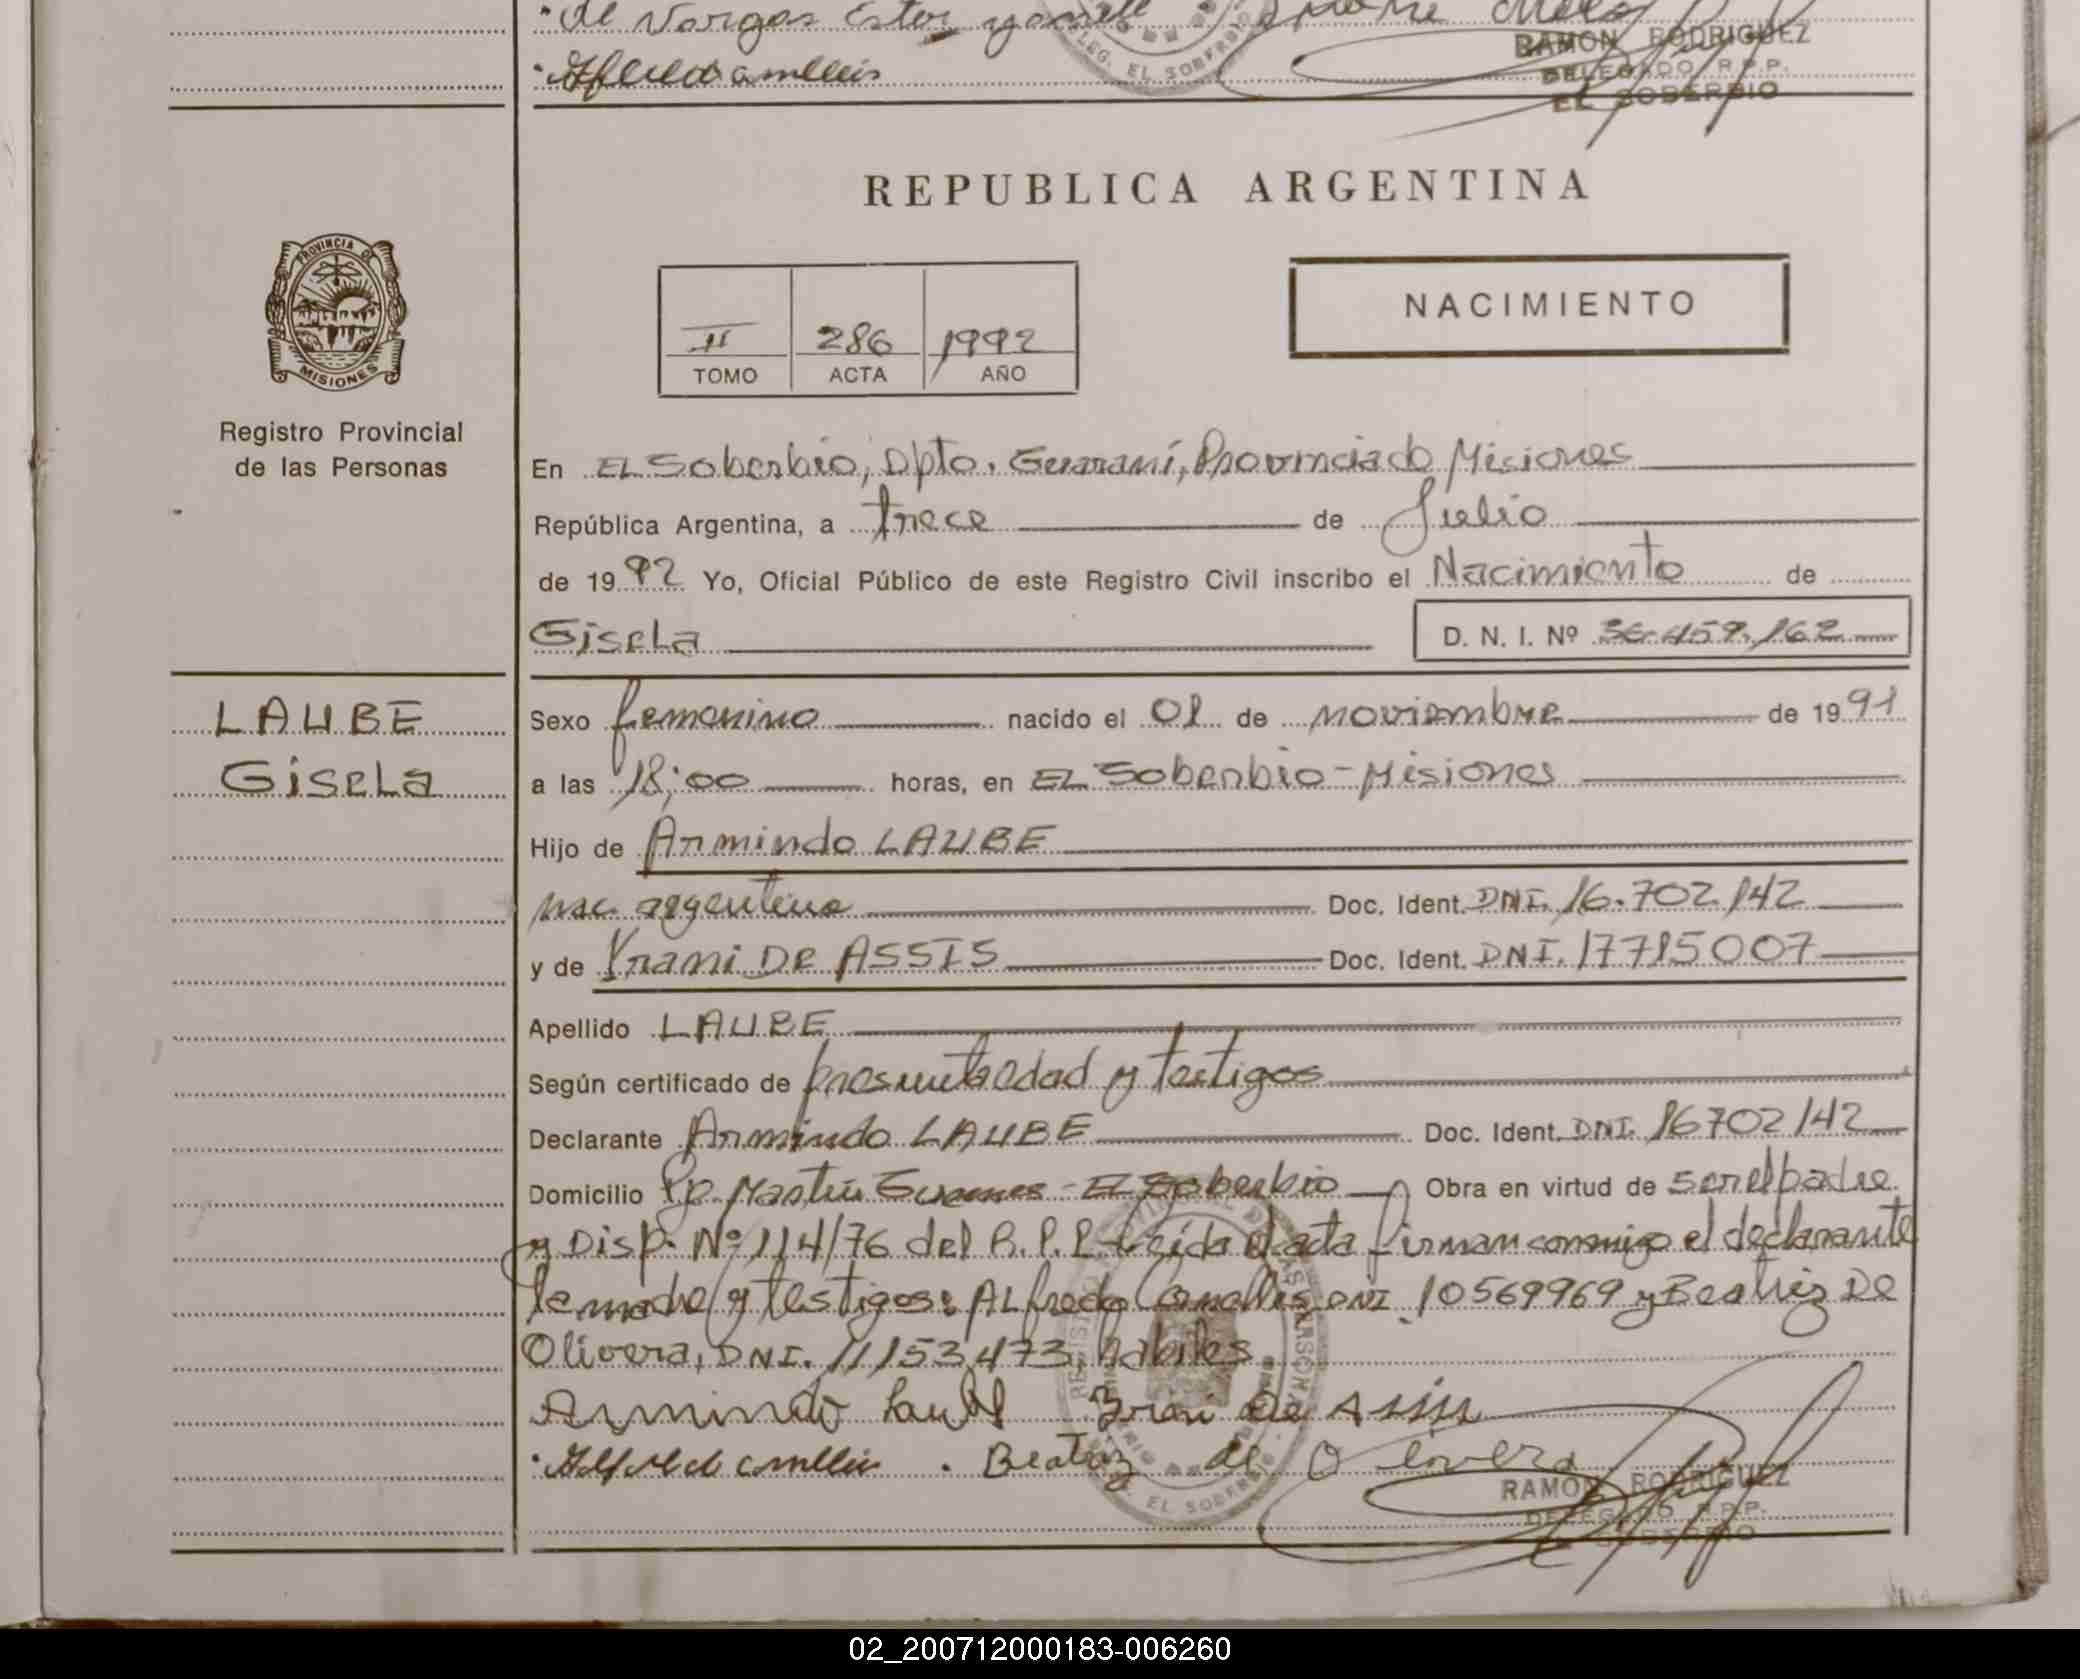 de Vargas Ester
DELEG. EL SOBERBIO
RAMON RODRIGUEZ
DELEGADO R.P.P.
EL SOBERBIO
REPUBLICA ARGENTINA
PROVINCIA DE
MISIONES
II 286 1992
TOMO ACTA AÑO
NACIMIENTO
Registro Provincial
de las Personas
En EL Soberbio, Dpto. Guaraní, Provincia de Misiones
República Argentina, a trece de Julio
de 1992 Yo, Oficial Público de este Registro Civil inscribo el Nacimiento de
Gisela D. N. I. Nº 36.459.162
LAUBE
Gisela
Sexo femenino nacido el 01 de noviembre de 1991
a las 18;00 horas, en EL Soberbio-Misiones
Hijo de Armindo LAUBE
nac. argentino Doc. Ident. DNI. 16.702.142
y de Yrani DE ASSIS Doc. Ident. DNI. 17715007
Apellido LAUBE
Según certificado de presunta edad y testigos
Declarante Armindo LAUBE Doc. Ident. DNI. 16702142
Domicilio Pje. Martín Guemes - EL Soberbio Obra en virtud de ser el padre
y Disp. Nº 114/76 del R.P.P. Leída el acta firman conmigo el declarante
la madre y testigos: ALfredo DNI. 10569969 y Beatriz De
Olivera, DNI. 11153473, hábiles
Armindo Laube Irani de Assis
Beatriz de Olivera
EL SOBERBIO
RAMON RODRIGUEZ
DELEGADO R.P.P.
EL SOBERBIO
02_200712000183-006260